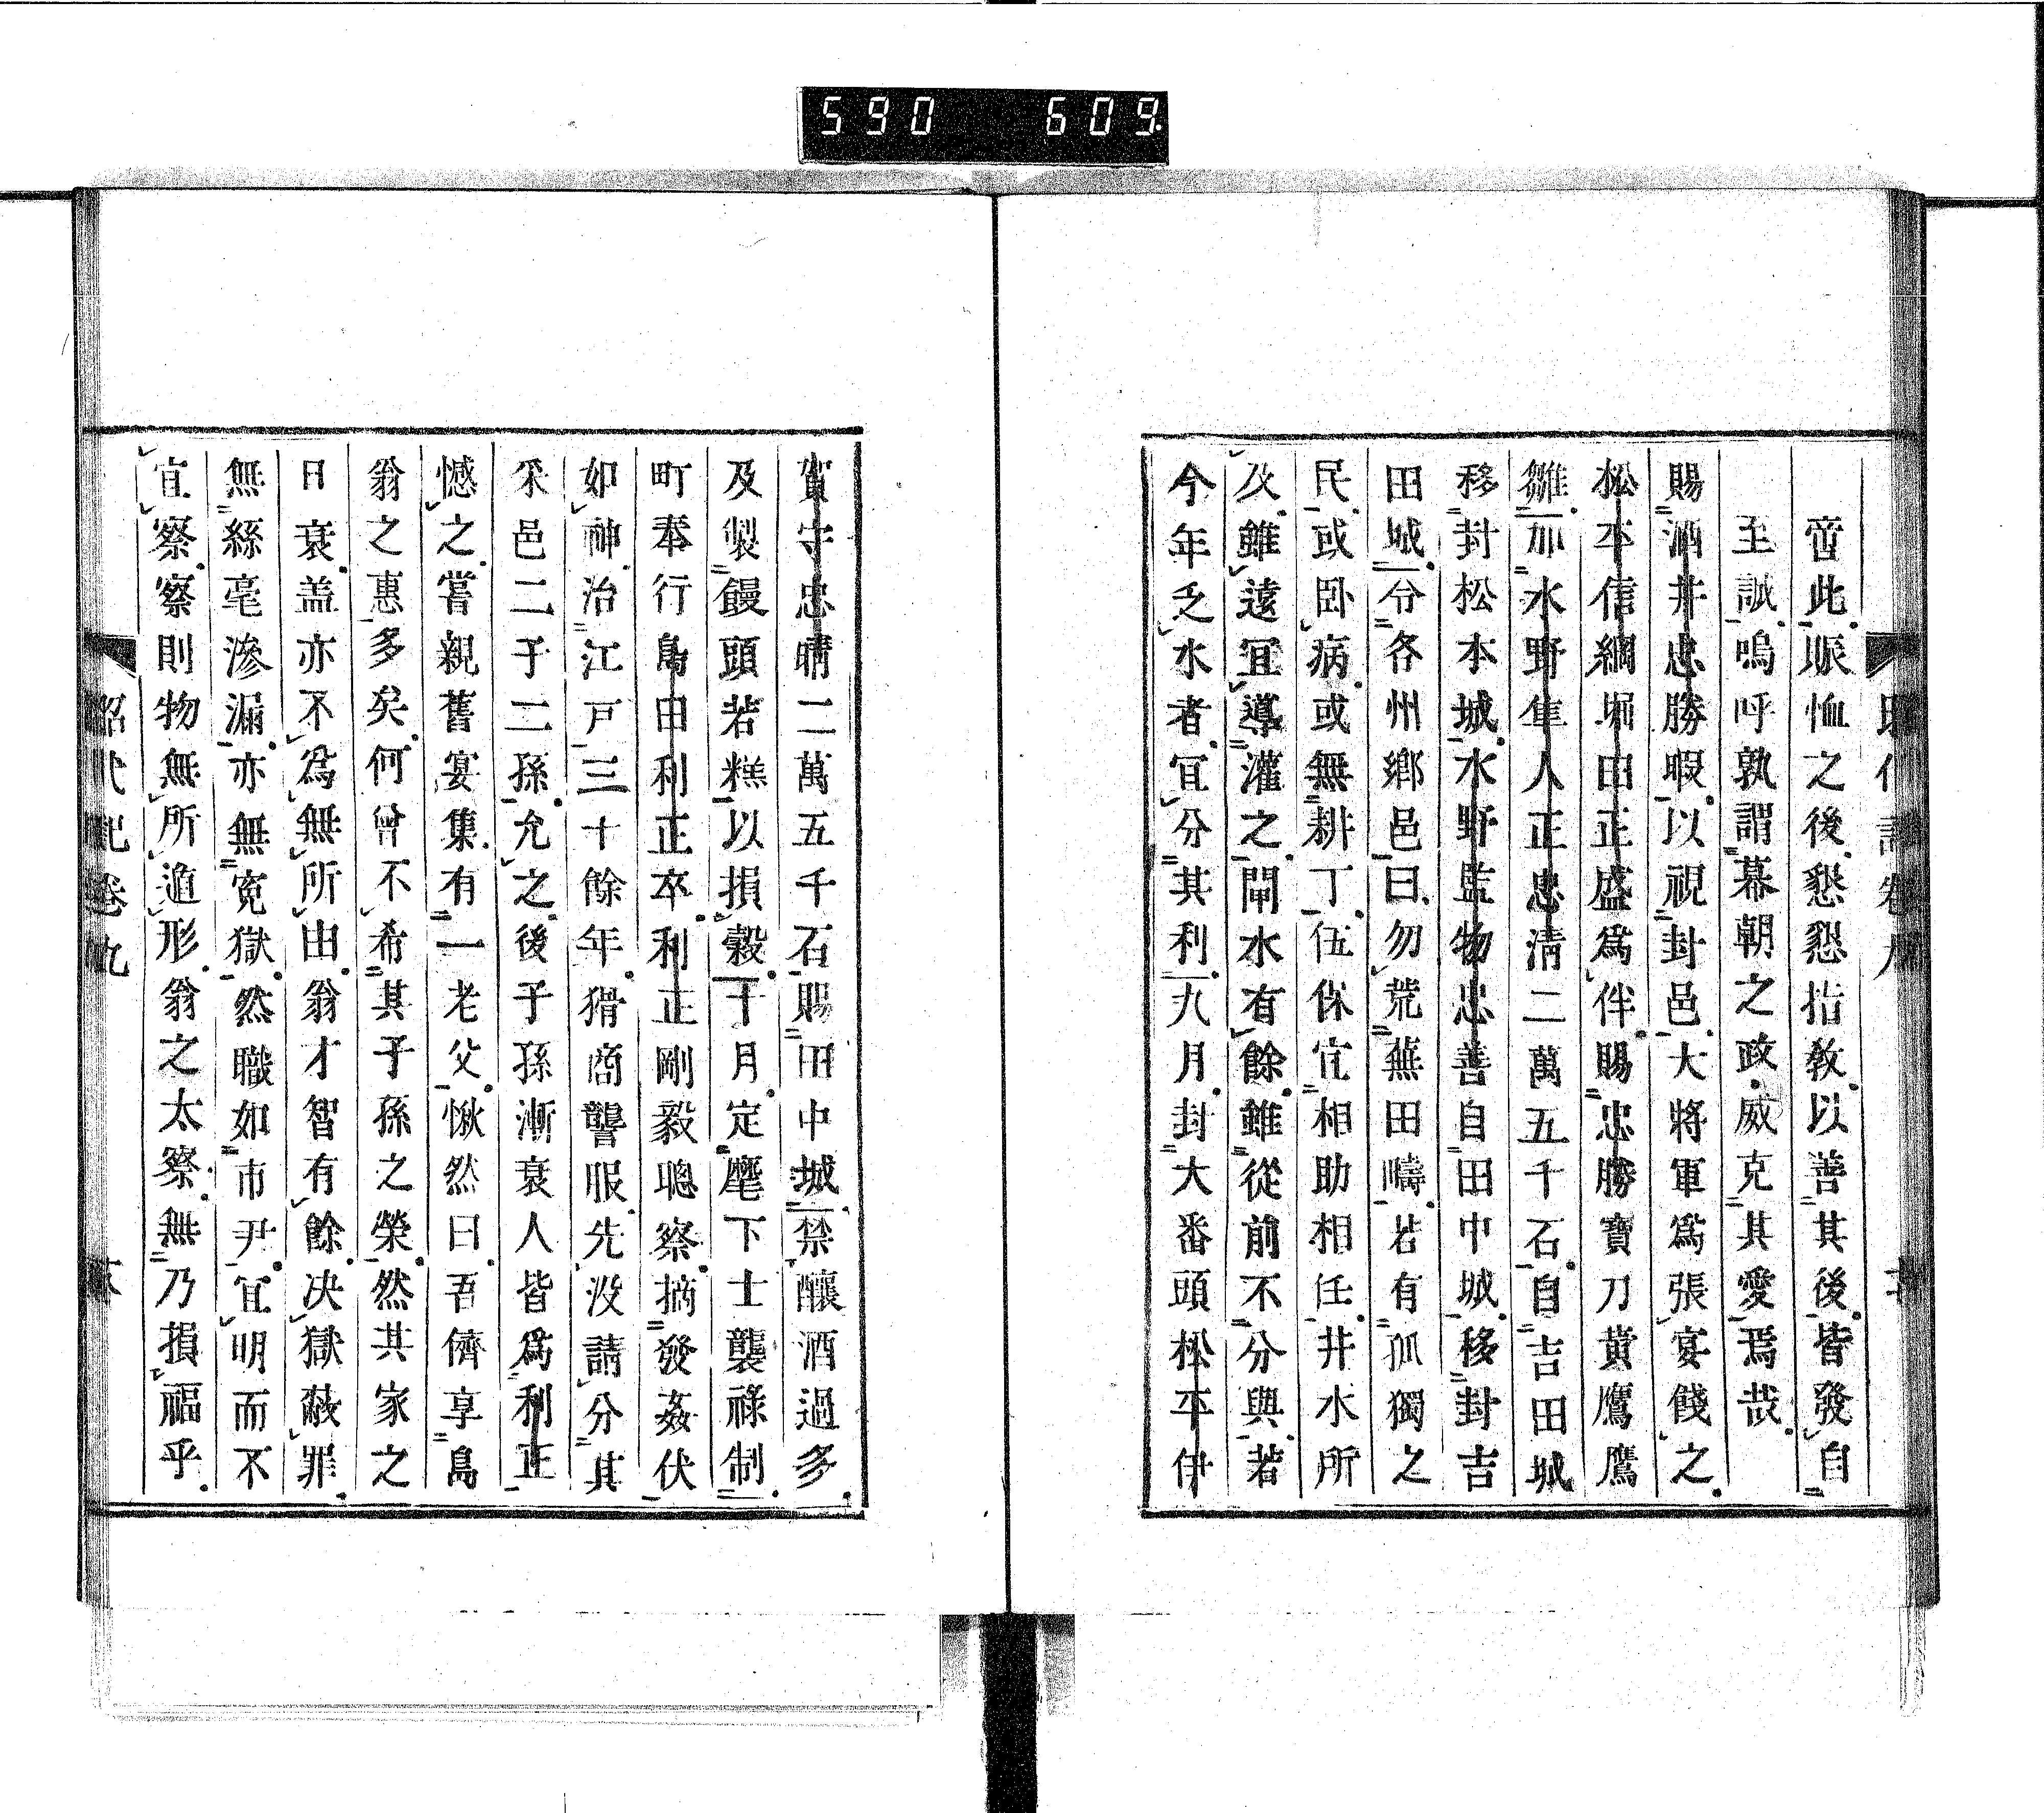 590 609.
啻此賑恤之後懇懇指敎以善其後皆發自
至誠嗚呼孰謂幕朝之政威克其愛焉哉
賜酒井忠勝暇以視封邑大將軍爲張宴餞之
松平信綱堀田正盛爲伴賜忠勝寶刀黃鷹鷹
雛加水野隼人正忠淸二萬五千石自吉田城
移封松本城水野監物忠善自田中城移封吉
田城令各州鄕邑曰勿荒蕪田疇若有孤獨之
民或臥病或無耕丁伍保宜相助相任井水所
及雖遠宜導灌之閘水有餘雖從前不分與若
今年乏水者宜分其利九月封大番頭松平伊
賀守忠晴二萬五千石賜田中城禁釀酒過多
及製饅頭若糕以損穀十月定麾下士襲祿制
町奉行島田利正卒利正剛毅聰察摘發姦伏
如神治江戶三十餘年猾商讋服先沒請分其
釆邑二子二孫允之後子孫漸衰人皆爲利正
憾之嘗親舊宴集有一老父愀然曰吾儕享島
翁之惠多矣何曾不希其子孫之榮然其家之
日衰盖亦不爲無所由翁才智有餘決獄蔽罪
無絲毫滲漏亦無寃獄然職如市尹宜明而不
宜察察則物無所遁形翁之太察無乃損福乎
昭代記卷九